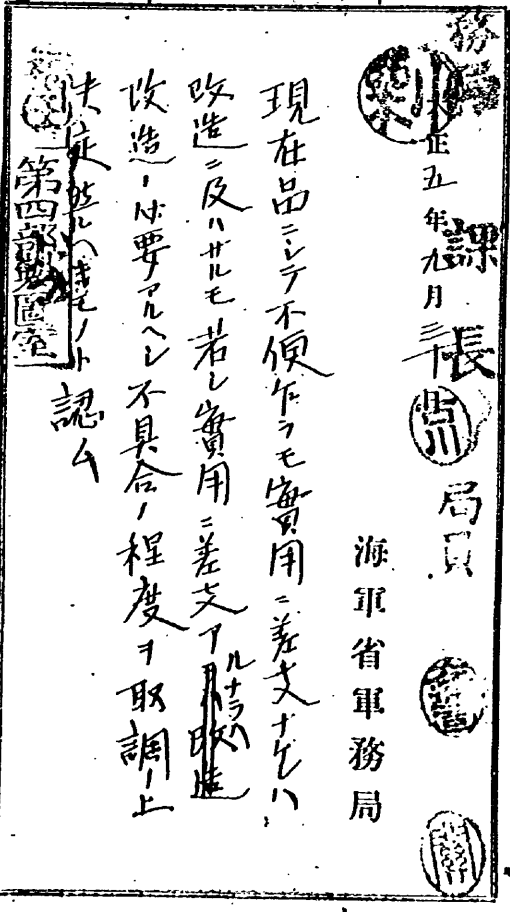 務局
課長
局員
大正五年九月三十日
海軍省軍務局
現在品ニシテ不便乍ラモ實用ニ差支ナケレハ
改造ニ及ハサルモ若シ實用ニ差支アルナラハ
改造ノ必要アルヘシ不具合ノ程度ヲ取調ノ上
決定然ルヘキモノト認ム
第四部製圖室